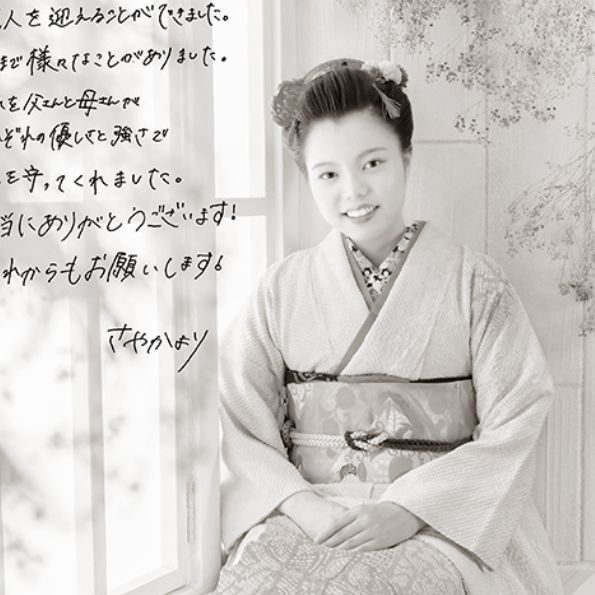 人を迎えることができました。
まで様々なことがありました。
を父さんと母さんが
ぞれの優しさと強さで
を守ってくれました。
当にありがとうございます!
れからもお願いします。
さやかより